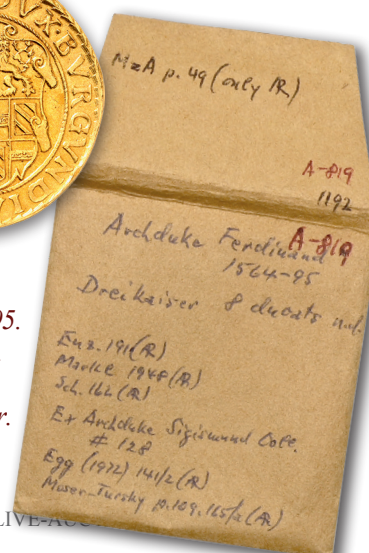 MzA p. 49 (only AR)
A-819
1192
Archduke Ferdinand A-819
1564-95
Dreikaiser 8 ducats n.d.
Enz. 191 (AR)
Markl 1948 (AR)
Sch. 162 (AR)
Ex Archduke Sigismund Coll.
# 128
Egg (1972) 141/2 (AR)
Moser-Tursky p. 109, 165/2 (AR)
DUX·BURGUNDI
95.
r.
LIVE-AUC